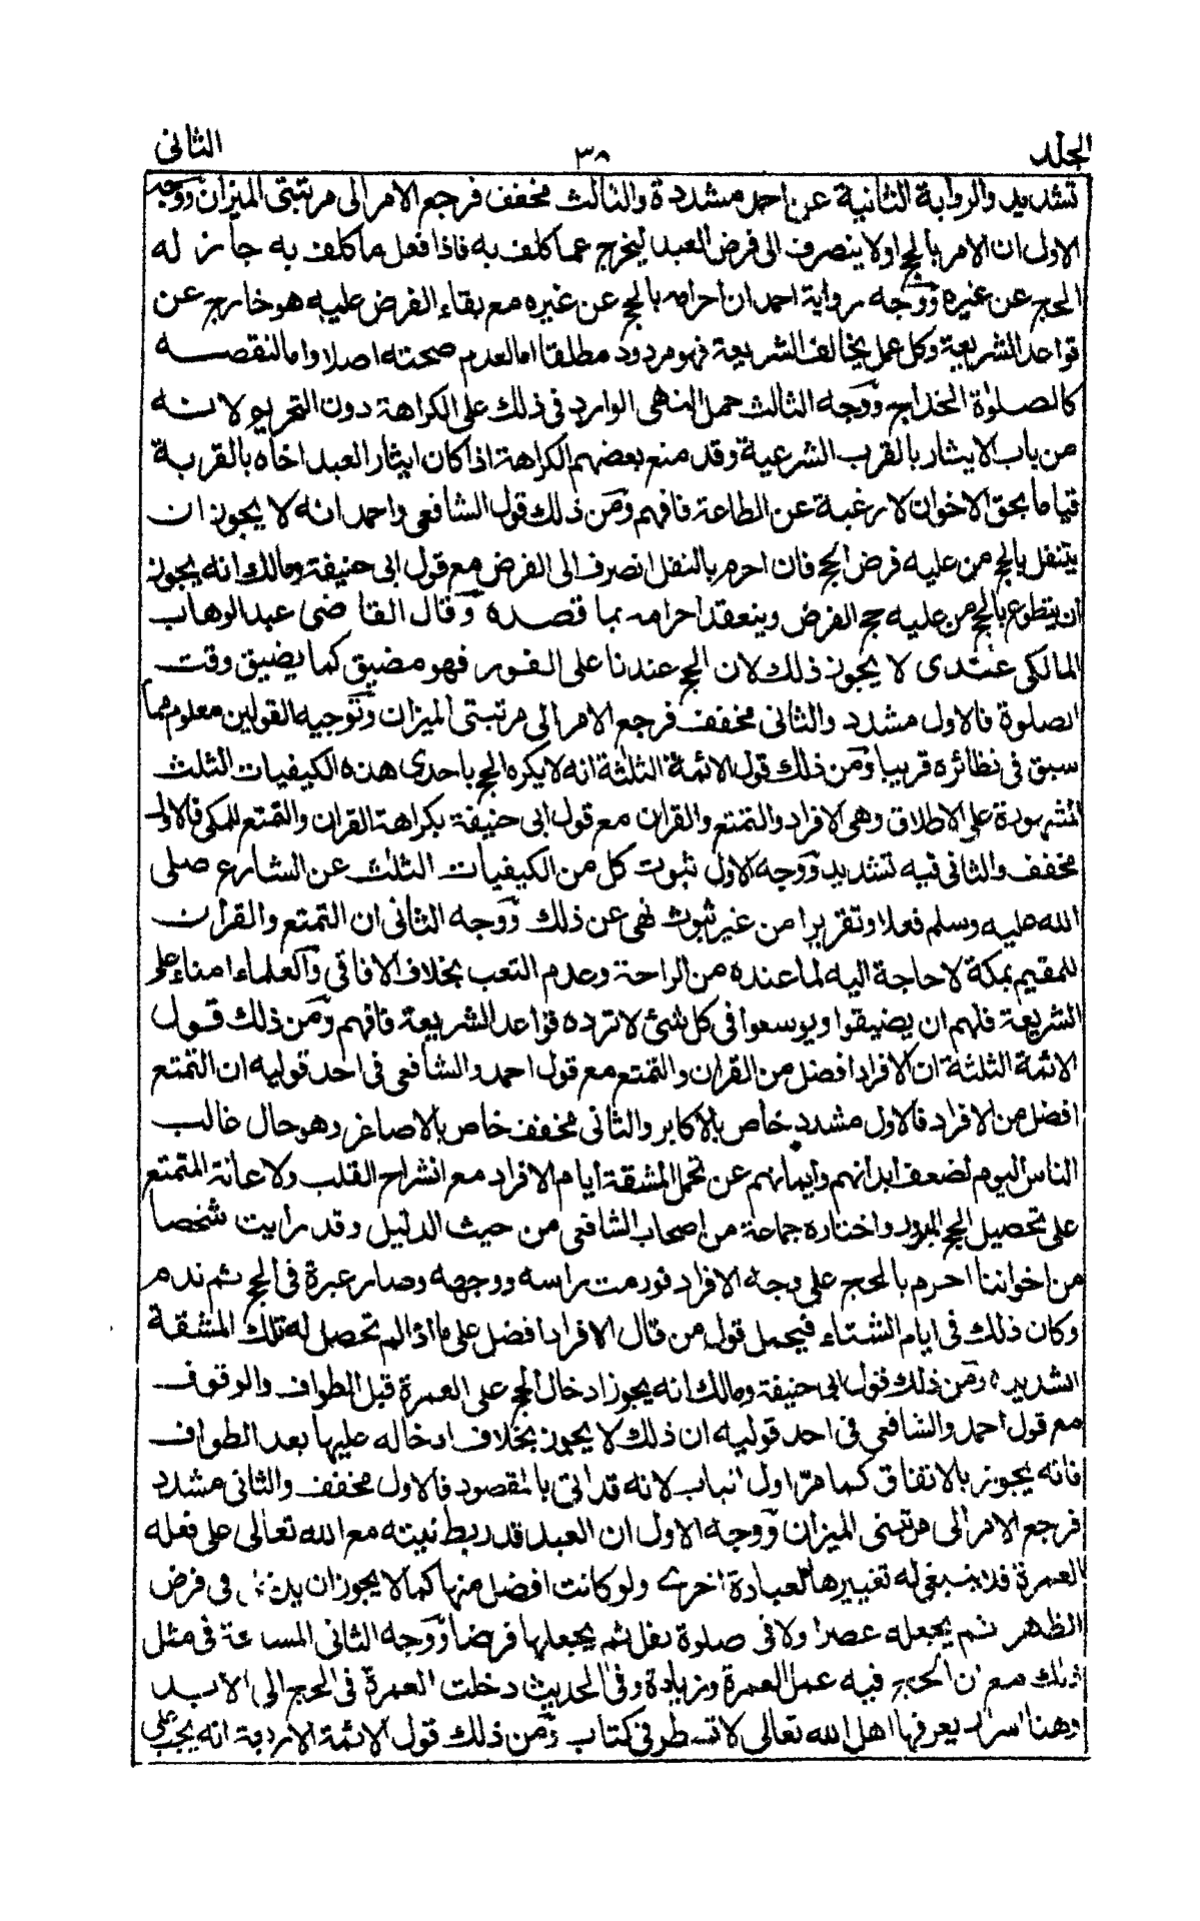 الجلد ٣٨ الثانى
تشديد والرواية الثانية عن احمد مشددة والثالث مخفف فرجع الامر الى مرتبتى الميزان ووجه
الاول ان الامر بالحج اولا ينصرف الى فرض العبد ليخرج عما كلف به فاذا فعل ما كلف به جاز له
الحج عن غيره ووجه رواية احمد ان احرامه بالحج عن غيره مع بقاء الفرض عليه هو خارج عن
قواعد الشريعة وكل عمل يخالف الشريعة فهو مردود مطلقا اما لعدم صحته اصلا واما لنقصه
كالصلوٰة الخداج ووجه الثالث حمل النهى الوارد فى ذلك على الكراهة دون التحريم لانه
من باب الايثار بالقرب الشرعية وقد منع بعضهم الكراهة اذا كان ايثار العبد اخاه بالقربة
قياما بحق الاخوان لا رغبة عن الطاعة فافهم ومن ذلك قول الشافعى واحمد انه لا يجوز ان
يتنفل بالحج من عليه فرض الحج فان احرم بالنفل انصرف الى الفرض مع قول ابى حنيفة ومالك انه يجوز
ان يتطوع بالحج من عليه حج الفرض وينعقد احرامه بما قصده وقال القاضى عبد الوهاب
المالكى عندى لا يجوز ذلك لان الحج عندنا على الفور فهو مضيق كما يضيق وقت
الصلوة فالاول مشدد والثانى مخفف فرجع الامر الى مرتبتى الميزان وتوجيه القولين معلوم مما
سبق فى نظائره قريبا ومن ذلك قول الائمة الثلثة انه لا يكره الحج باحدى هذه الكيفيات الثلث
المشهورة على الاطلاق وهى الافراد والتمتع والقران مع قول ابى حنيفة بكراهة القران والتمتع للمكى فالاول
مخفف والثانى فيه تشديد ووجه الاول ثبوت كل من الكيفيات الثلث عن الشارع صلى
الله عليه وسلم فعلا وتقريرا من غير ثبوت نهى عن ذلك ووجه الثانى ان التمتع والقران
للمقيم بمكة لا حاجة اليه لما عنده من الراحة وعدم التعب بخلاف الافاقى والعلماء امناء على
الشريعة فلهم ان يضيقوا ويوسعوا فى كل شئ لا ترده قواعد الشريعة فافهم ومن ذلك قول
الائمة الثلثة ان الافراد افضل من القران والتمتع مع قول احمد والشافعى فى احد قوليه ان التمتع
افضل من الافراد فالاول مشدد خاص بالاكابر والثانى مخفف خاص بالاصاغر وهو حال غالب
الناس اليوم لضعف ابدانهم وايمانهم عن تحمل المشقة ايام الافراد مع انشراح القلب ولاعانة المتمتع
على تحصيل الحج المبرور واختاره جماعة من اصحاب الشافعى من حيث الدليل وقد رايت شخصا
من اخواننا احرم بالحج على وجه الافراد فورمت راسه ووجهه وصار عبرة فى الحج ثم ندم
وكان ذلك فى ايام الشتاء فيحمل قول من قال الافراد افضل على ما اذا لم تحصل له تلك المشقة
الشديدة ومن ذلك قول ابى حنيفة ومالك انه يجوز ادخال الحج على العمرة قبل الطواف والوقوف
مع قول احمد والشافعى فى احد قوليه ان ذلك لا يجوز بخلاف ادخاله عليها بعد الطواف
فانه يجوز بالاتفاق كما مر اول الباب لانه قد اتى بالمقصود فالاول مخفف والثانى مشدد
فرجع الامر الى مرتبتى الميزان ووجه الاول ان العبد قد ربط نيته مع الله تعالى على فعله
العمرة فلا ينبغى له تغييرها لعبادة اخرى ولو كانت افضل منها كما لا يجوز ان فى فرض
الظهر ثم يجعله عصرا ولا فى صلوة نفل ثم يجعلها فرضا ووجه الثانى المسامحة فى مثل
ذلك مع ان الحج فيه عمل العمرة وزيادة وفى الحديث دخلت العمرة فى الحج الى الابد
وهنا اسرار يعرفها اهل الله تعالى لا تسطر فى كتاب ومن ذلك قول الائمة الاربعة انه يجب على